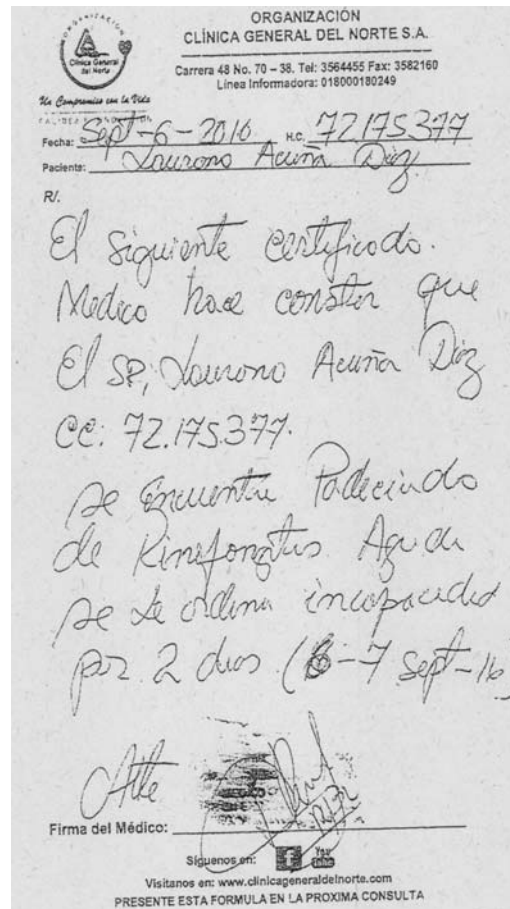 ORGANIZACIÓN
CLÍNICA GENERAL DEL NORTE S.A.
Carrera 48 No. 70 – 38. Tel: 3564455 Fax: 3582160
Línea Informadora: 018000180249
ORGANIZACIÓN
Clínica General
del Norte
Un Compromiso con la Vida
Fecha: Sept-6-2016 H.C. 72.175.377
Paciente: Laureno Acuña Diaz
R/.
El siguiente Certificado.
Medico hace constar que
El SR; Laureno Acuña Diaz
CC: 72.175.377.
se Encuentra Padeciendo
de Rinofaringitis Aguda
se le ordena incapacidad
por 2 dias (6-7 sept-16)
Atte
Firma del Médico:
Síguenos en: f You Tube
Visitanos en: www.clinicageneraldelnorte.com
PRESENTE ESTA FORMULA EN LA PROXIMA CONSULTA